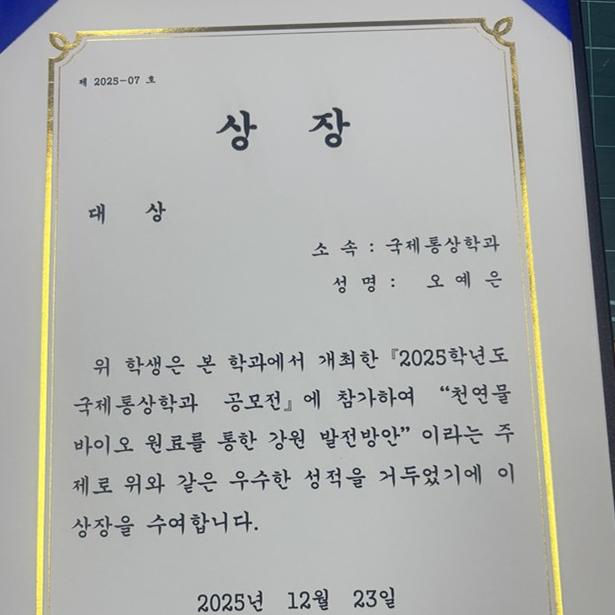 제 2025-07 호
상 장
대 상
소 속 : 국제통상학과
성 명 : 오 예 은
위 학생은 본 학과에서 개최한 『2025학년도
국제통상학과 공모전』에 참가하여 “천연물
바이오 원료를 통한 강원 발전방안” 이라는 주
제로 위와 같은 우수한 성적을 거두었기에 이
상장을 수여합니다.
2025년 12월 23일